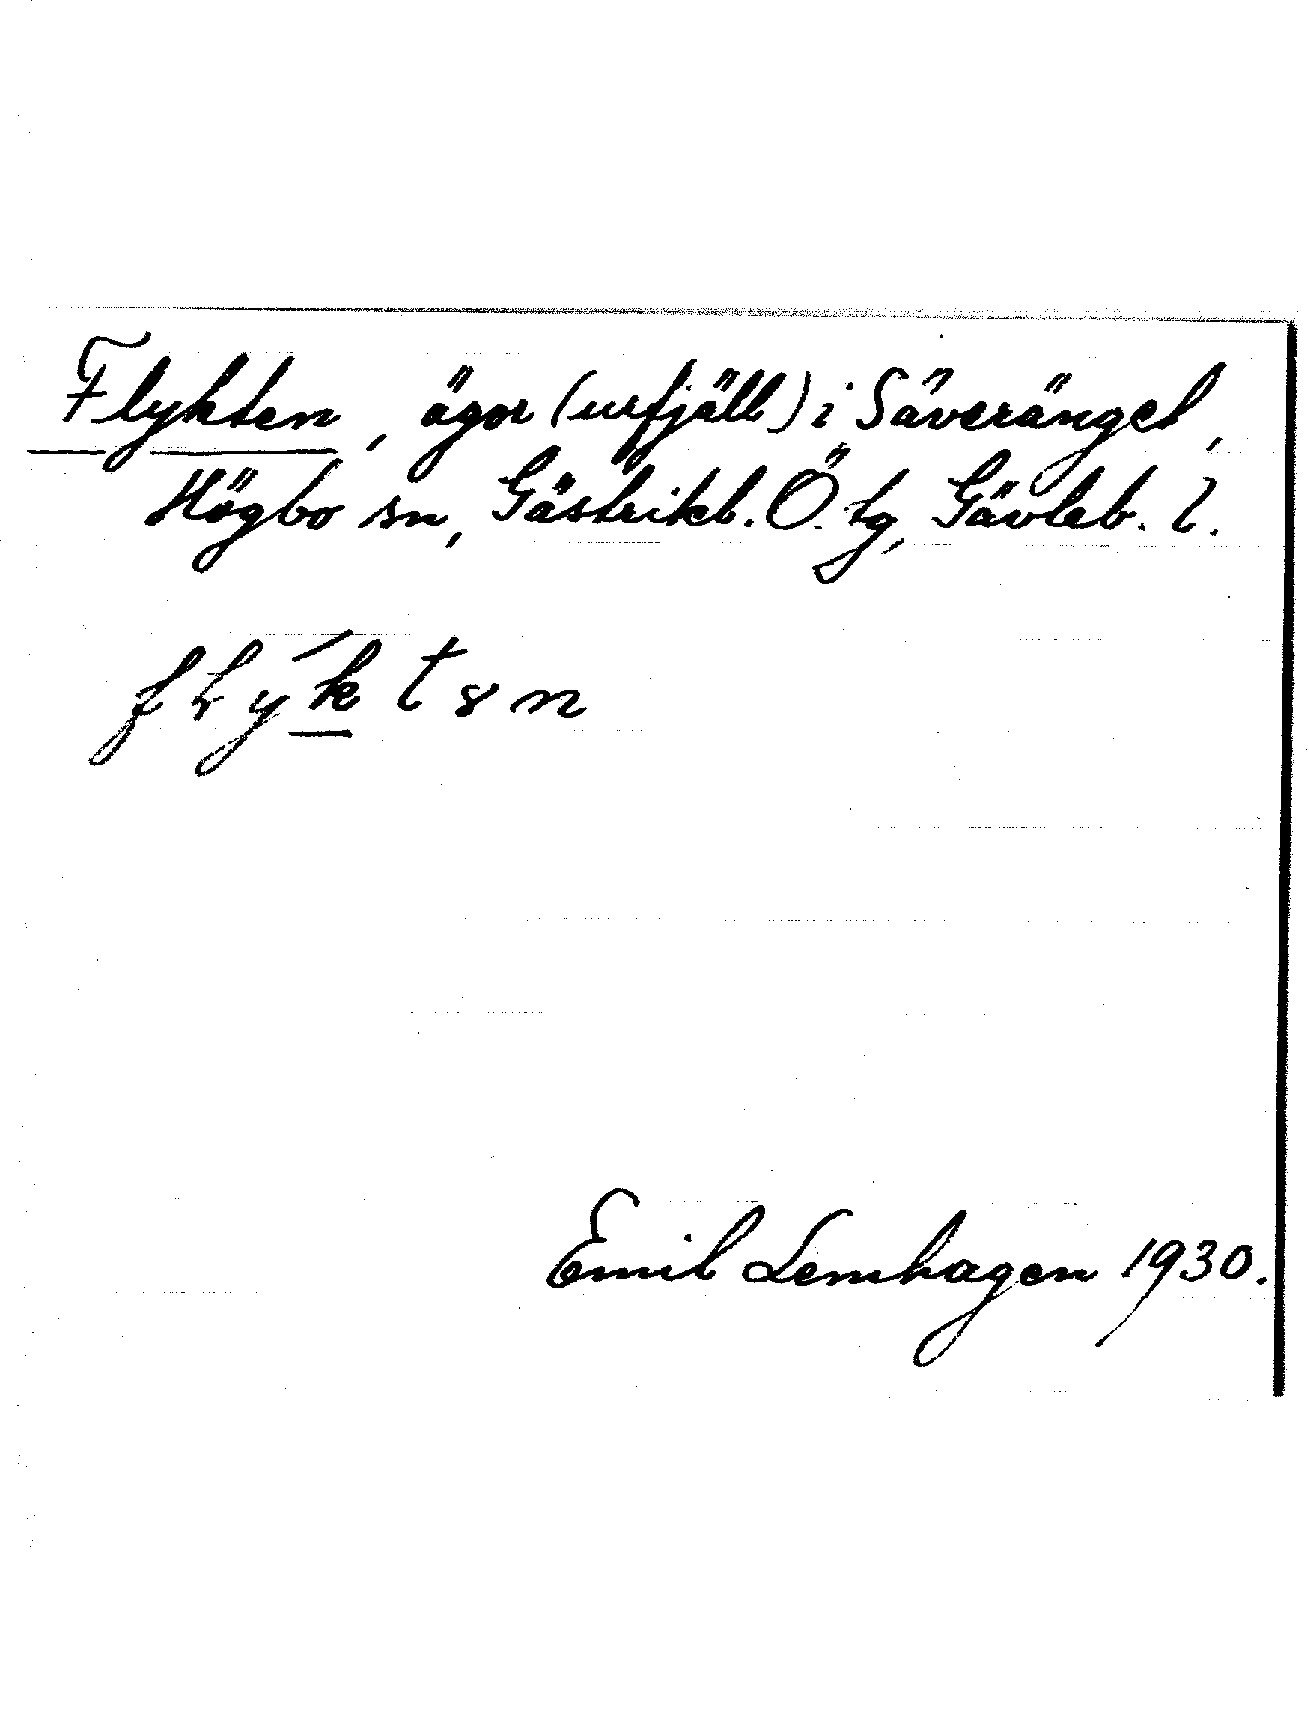 Flykten, ägor (urfjäll) i Säverängel,
Högbo sn, Gästrikl. Ö. tg, Gävleb. l.
flýktən
Emil Lemhagen 1930.